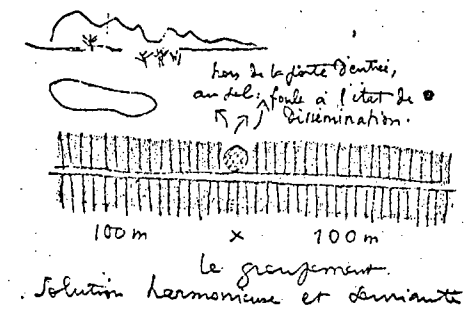 hors de la porte d'entrée,
au sol : foule à l'état de
dissémination.
100 m x 100 m
le groupement.
Solution harmonieuse et